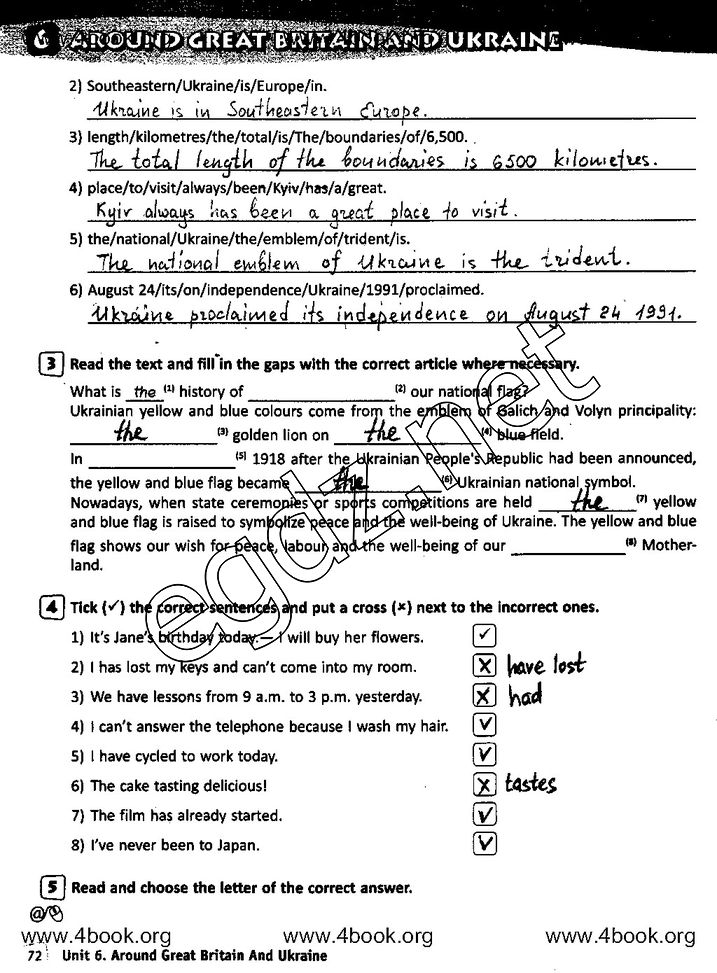 6 AROUND GREAT BRITAIN AND UKRAINE
2) Southeastern/Ukraine/is/Europe/in.
Ukraine is in Southeastern Europe.
3) length/kilometres/the/total/is/The/boundaries/of/6,500.
The total length of the boundaries is 6500 kilometres.
4) place/to/visit/always/been/Kyiv/has/a/great.
Kyiv always has been a great place to visit.
5) the/national/Ukraine/the/emblem/of/trident/is.
The national emblem of Ukraine is the trident.
6) August 24/its/on/independence/Ukraine/1991/proclaimed.
Ukraine proclaimed its independence on August 24 1991.
3 Read the text and fill in the gaps with the correct article where necessary.
What is the (1) history of ____ (2) our national flag?
Ukrainian yellow and blue colours come from the emblem of Galich and Volyn principality:
the (3) golden lion on the (4) blue field.
In ____ (5) 1918 after the Ukrainian People's Republic had been announced,
the yellow and blue flag became the (6) Ukrainian national symbol.
Nowadays, when state ceremonies or sports competitions are held the (7) yellow
and blue flag is raised to symbolize peace and the well-being of Ukraine. The yellow and blue
flag shows our wish for peace, labour and the well-being of our ____ (8) Mother-
land.
4 Tick (✓) the correct sentences and put a cross (×) next to the incorrect ones.
1) It's Jane's birthday today. — I will buy her flowers. ✓
2) I has lost my keys and can't come into my room. X have lost
3) We have lessons from 9 a.m. to 3 p.m. yesterday. X had
4) I can't answer the telephone because I wash my hair. V
5) I have cycled to work today. V
6) The cake tasting delicious! X tastes
7) The film has already started. V
8) I've never been to Japan. V
5 Read and choose the letter of the correct answer.
egdz.net
www.4book.org www.4book.org www.4book.org
72 Unit 6. Around Great Britain And Ukraine